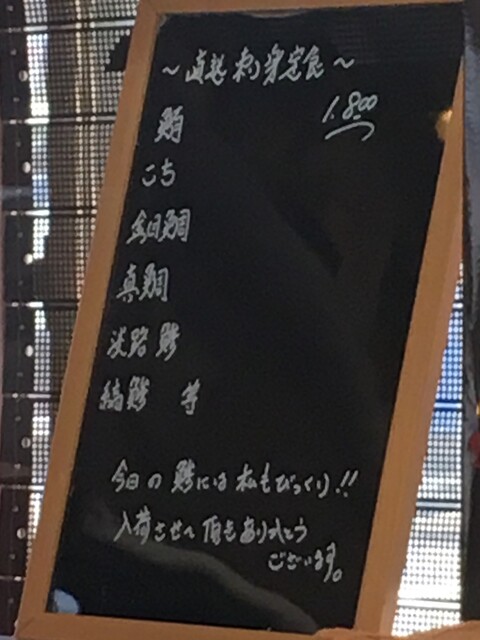 刺身定食〜
1,800
こち
金目鯛
真鯛
淡路 鯵
縞鯵 等
今日の鯵には私もびっくり!!
入荷させて頂きありがとう
ございます。